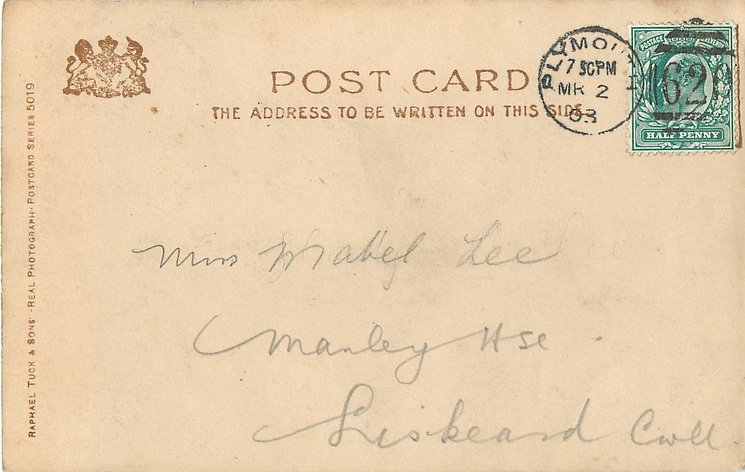 POST CARD
THE ADDRESS TO BE WRITTEN ON THIS SIDE
PLYMOUTH
7 30PM
MR 2
03
620
POSTAGE
HALF PENNY
RAPHAEL TUCK & SONS' "REAL PHOTOGRAPH" POSTCARD SERIES 5019
Miss Mabel Lee
Manley Hse.
Liskeard Cwll.